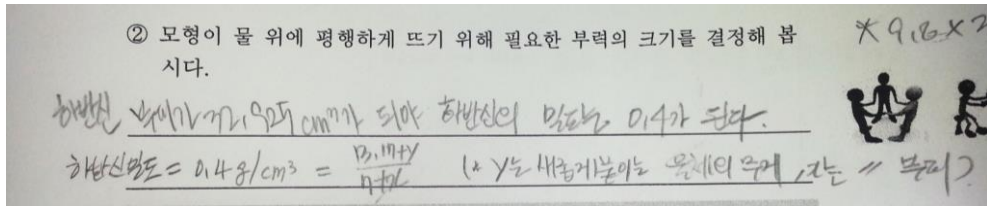 ② 모형이 물 위에 평행하게 뜨기 위해 필요한 부력의 크기를 결정해 봅
시다.
* 9.8 × 2
하반신 부피가 72.925cm³가 되야 하반신의 밀도는 0.4가 된다.
하반신밀도 = 0.4g/cm³ = (* y는 새롭게붙이는 물체의 무게, x는 〃 부피)